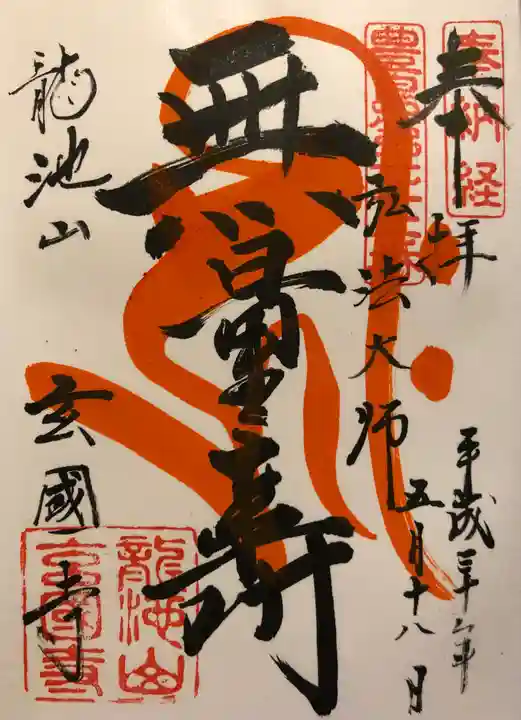 奉拝
奉納経
弘法大師
平成三十年
五月十八日
無量壽
龍池山
玄國寺
龍池山
玄國寺